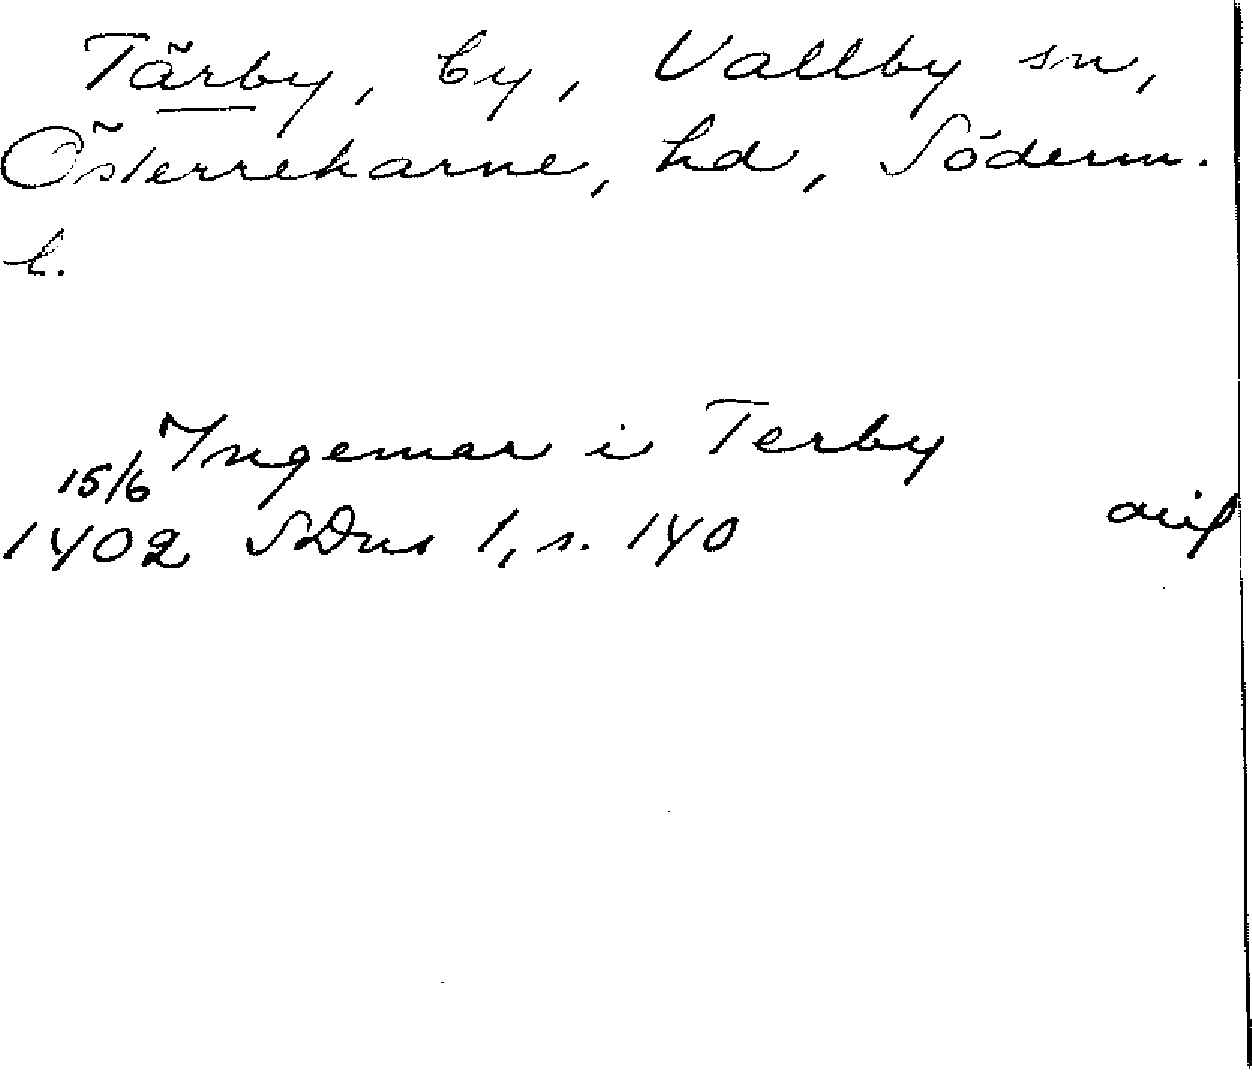 Tärby, by, Vallby sn,
Österrekarne, hd, Söderm.
l.
Ingemar i Terby
15/6
1402 SDns 1, s. 140